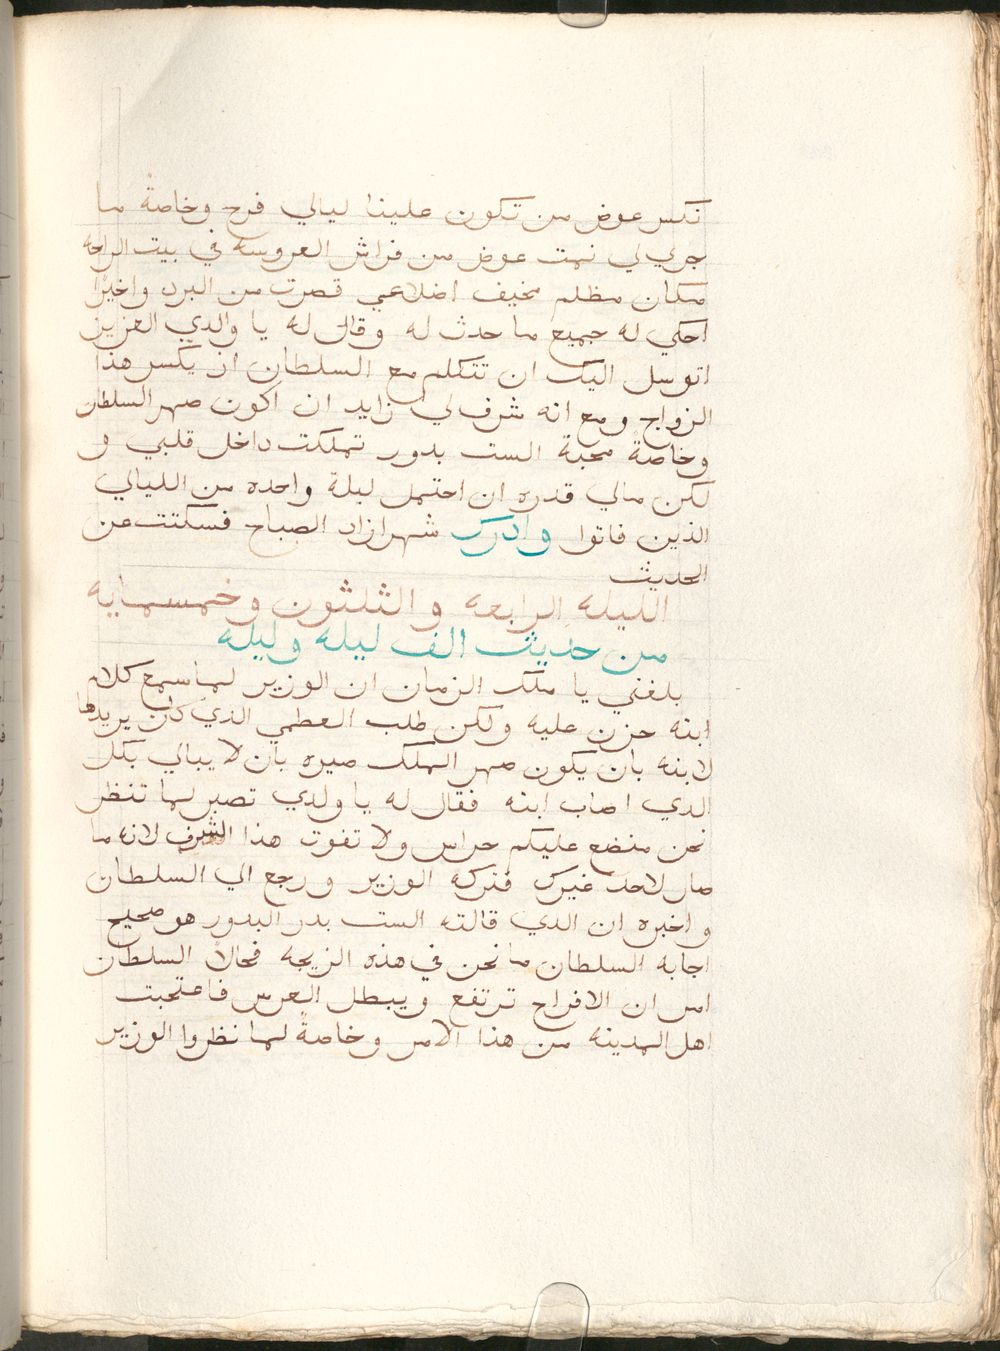 نكس عوض من تكون علينا ليالي فرح وخاصةً ما
جري لي نمت عوض من فراش العروسه في بيت الراحه
مكان مظلم مخيف اضلاعي قصرت من البرد واخيرًا
احكي له جميع ما حدث له وقال له يا والدي العزيز
اتوسل اليك ان تتكلم مع السلطان ان يكسر هذا
الزواج ومع انه شرف لي زايد ان اكون صهر السلطان
وخاصةً محبة الست بدور تملكت داخل قلبي و
لكن مالي قدره ان احتمل ليلة واحده من الليالي
الذين فاتوا وادرك شهرازاد الصباح فسكتت عن
الحديث
الليله الرابعه والثلثون وخمسمايه
من حديث الف ليله وليله
بلغني يا ملك الزمان ان الوزير لما سمع كلام
ابنه حزن عليه ولكن طلب العظمي الذي كان يريدها
لابنه بان يكون صهر الملك صيره بان لا يبالي بكل
الدي اصاب ابنه فقال له يا ولدي تصبر لما تنظر
نحن منضع عليكم حراس ولا تفوت هذا الشرف لانه ما
صار لاحد غيرك فتركه الوزير ورجع الي السلطان
واخبره ان الدي قالته الست بدر البدور هو صحيح
اجابه السلطان ما نحن في هذه الزيجه فحالاً السلطان
امر ان الافراح ترتفع ويبطل العرس فاعتجبت
اهل المدينه من هذا الامر وخاصةً لما نظروا الوزير